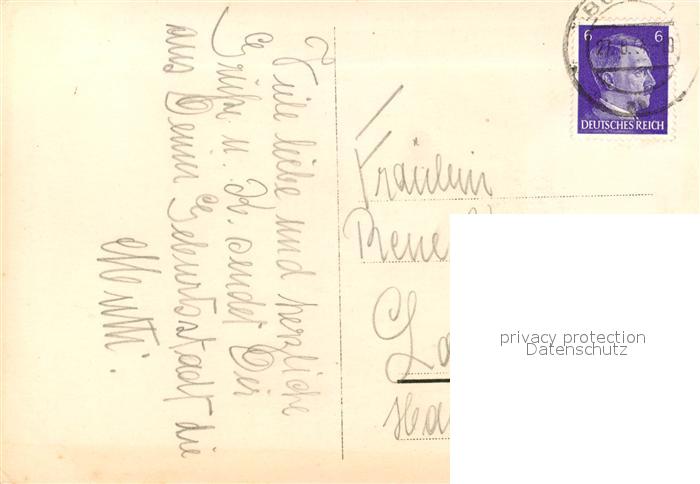 Viele liebe und herzliche
Grüße u. K. sendet Dir
aus Deiner Geburtsstadt die
Mutti.
6 6
DEUTSCHES REICH
Fräulein
privacy protection
Datenschutz